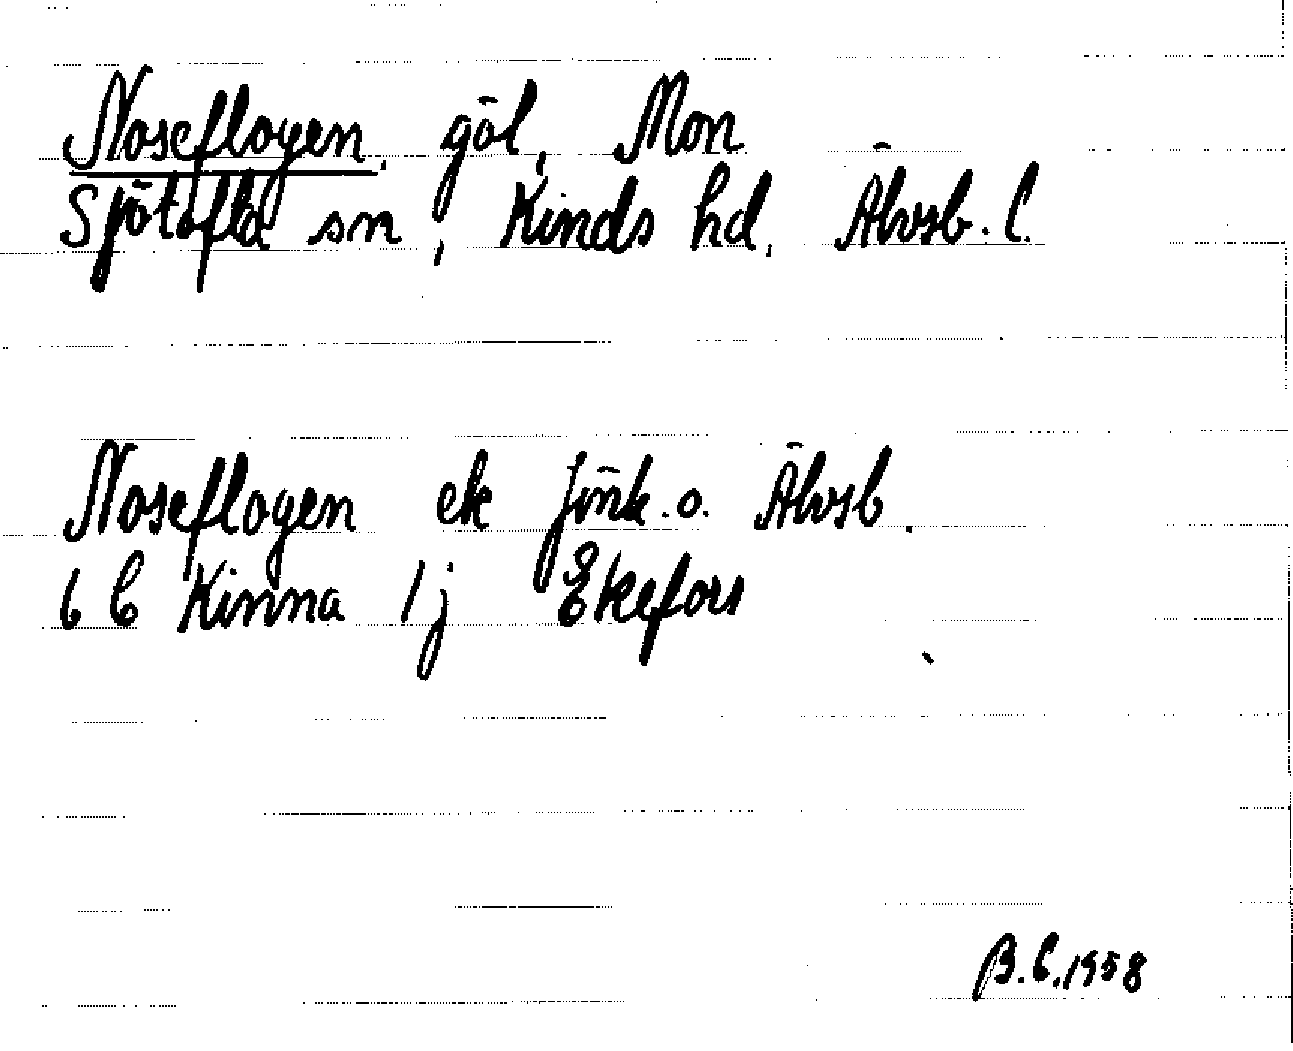 Noseflogen, göl, Mon
Sjötofta sn, Kinds hd, Älvsb. l.
Noseflogen ek Jönk. o. Älvsb.
6 C Kinna 1j Ekefors
B.C. 1958